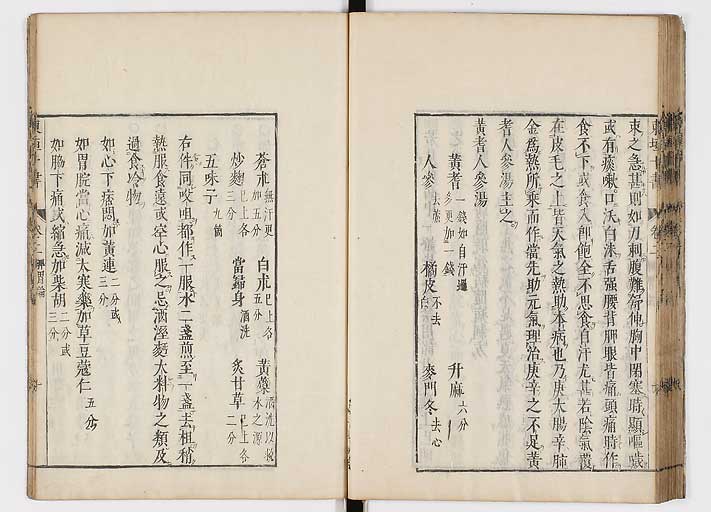 束之急甚則如刀刺腹難舒伸胸中閉塞時顯嘔噦
或有痰嗽口沃白沫舌强腰背胛眼皆痛頭痛時作
食不下或食入即飽全不思食自汗尤甚若陰氣覆
在皮毛之上皆天氣之熱助本病也乃庚大腸辛肺
金爲熱所乘而作當先助元氣理治庚辛之不足黃
耆人參湯主之
黃耆人參湯
黃耆 一錢如自汗過多更加一錢 升麻 六分
人參 去蘆 橘皮 不去白 麥門冬 去心
蒼朮 無汗更加五分 白朮 已上各五分 黃蘗 酒洗以救水之源
炒麴 三分 當歸身 酒洗 炙甘草 已上各二分
五味子 九箇
右件同㕮咀都作一服水二盞煎至一盞去柤稍
熱服食遠或空心服之忌酒溼麪大料物之類及
過食冷物
如心下痞悶加黃連 二分或三分
如胃脘當心痛減大寒藥加草豆蔻仁 五分
如脇下痛或縮急加柴胡 二分或三分